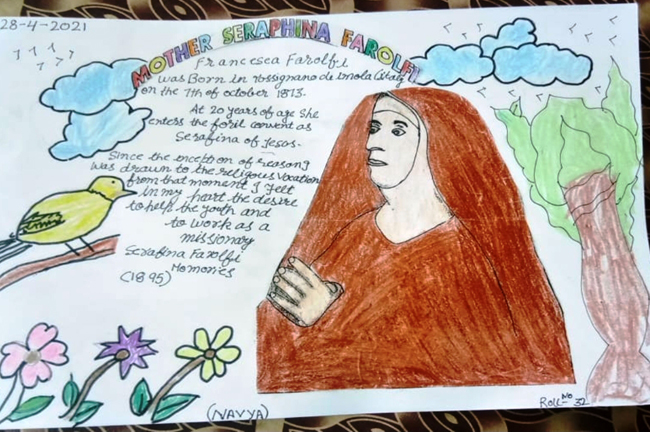 28-4-2021
MOTHER SERAPHINA FAROLFI
Francesca Farolfi
was Born in rossignano de imola (Italy
on the 7th of october 1873.
At 20 years of age she
enters the foril convent as
Serafina of Jesus-
Since the inception of reason I
was drawn to the religious vocation
from that moment I felt
in my heart the desire
to help the youth and
to work as a
missionary
Serafina Farolfi
Momories
(1895)
(NAVYA)
Roll No 32